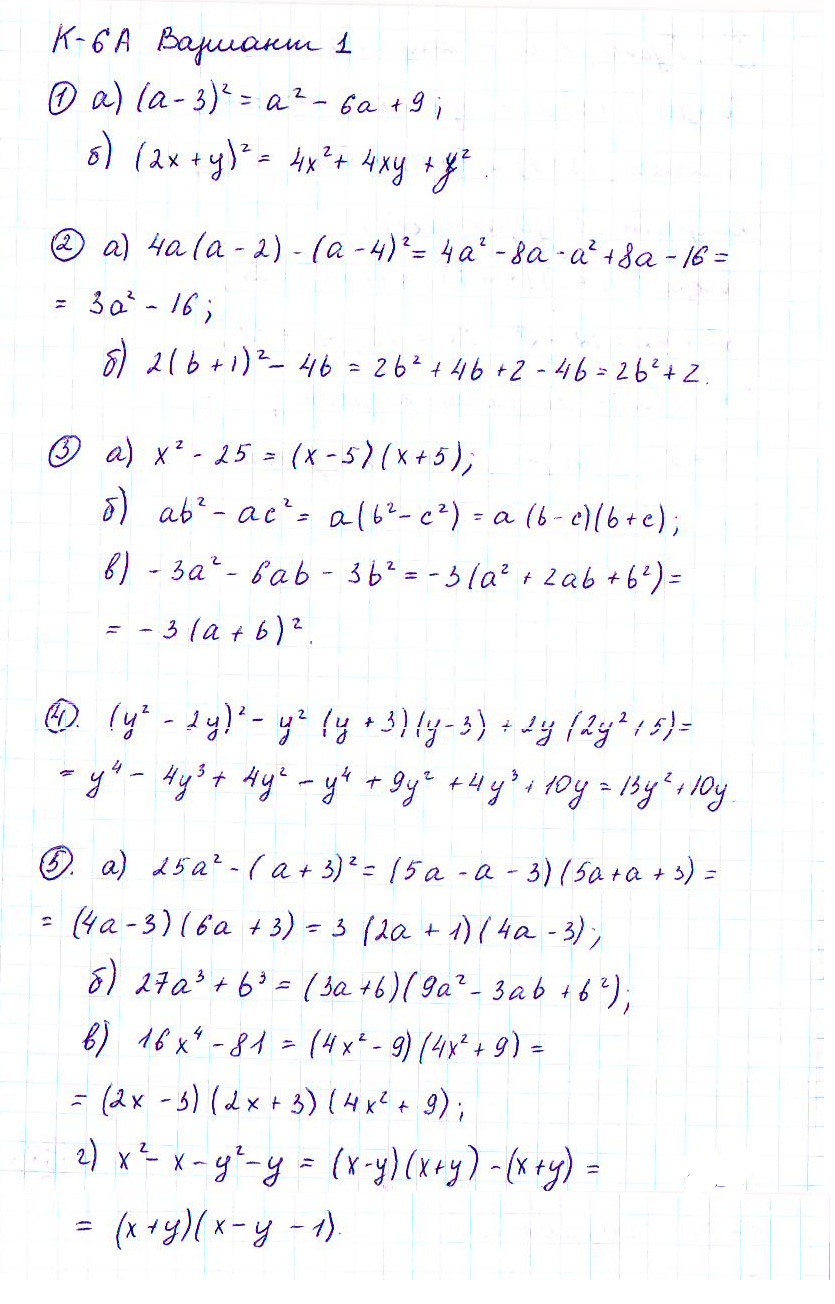 К-6А Вариант 1
① а) (a - 3)² = a² - 6a + 9;
б) (2x + y)² = 4x² + 4xy + y².
② а) 4a(a - 2) - (a - 4)² = 4a² - 8a - a² + 8a - 16 =
= 3a² - 16;
б) 2(b + 1)² - 4b = 2b² + 4b + 2 - 4b = 2b² + 2.
③ а) x² - 25 = (x - 5)(x + 5);
б) ab² - ac² = a(b² - c²) = a (b - c)(b + c);
в) - 3a² - 6ab - 3b² = -3(a² + 2ab + b²) =
= - 3(a + b)².
④. (y² - 2y)² - y² (y + 3)(y - 3) + 2y (2y² + 5) =
= y⁴ - 4y³ + 4y² - y⁴ + 9y² + 4y³ + 10y = 13y² + 10y.
⑤. а) 25a² - (a + 3)² = (5a - a - 3)(5a + a + 3) =
= (4a - 3)(6a + 3) = 3 (2a + 1)(4a - 3);
б) 27a³ + b³ = (3a + b)(9a² - 3ab + b²);
в) 16x⁴ - 81 = (4x² - 9)(4x² + 9) =
= (2x - 3)(2x + 3)(4x² + 9);
г) x² - x - y² - y = (x - y)(x + y) - (x + y) =
= (x + y)(x - y - 1).